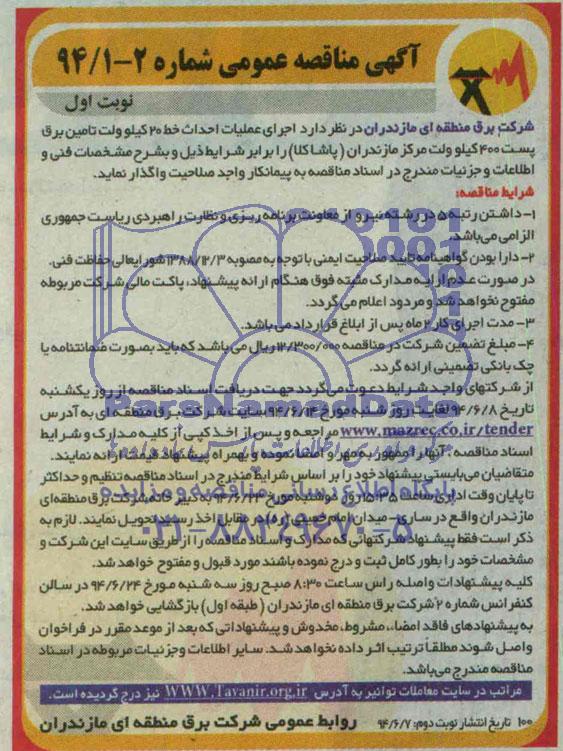 آگهی مناقصه عمومی شماره ۲-۹۴/۱
نوبت اول
شرکت برق منطقه ای مازندران در نظر دارد اجرای عملیات احداث خط ۲۰ کیلو ولت تامین برق
پست ۴۰۰ کیلو ولت مرکز مازندران (پاشاکلا) را برابر شرایط ذیل و بشرح مشخصات فنی و
اطلاعات و جزئیات مندرج در اسناد مناقصه به پیمانکار واجد صلاحیت واگذار نماید.
شرایط مناقصه:
۱- داشتن رتبه ۵ در رشته نیرو از معاونت برنامه ریزی و نظارت راهبردی ریاست جمهوری
الزامی می‌باشد.
۲- دارا بودن گواهینامه تایید صلاحیت ایمنی با توجه به مصوبه ۱۳۸۸/۱۲/۳ شورایعالی حفاظت فنی.
در صورت عدم ارایه مدارک مثبته فوق هنگام ارائه پیشنهاد، پاکت مالی شرکت مربوطه
مفتوح نخواهد شد و مردود اعلام می گردد.
۳- مدت اجرای کار ۲ ماه پس از ابلاغ قرارداد می باشد.
۴- مبلغ تضمین شرکت در مناقصه ۱۲/۳۰۰/۰۰۰ ریال می باشد که باید بصورت ضمانتنامه یا
چک بانکی تضمینی ارائه گردد.
از شرکتهای واجد شرایط دعوت می‌گردد جهت دریافت اسناد مناقصه از روز یکشنبه
تاریخ ۹۴/۶/۸ لغایت روز شنبه مورخ ۹۴/۶/۱۴ سایت شرکت برق منطقه ای به آدرس
www.mazrec.co.ir/tender مراجعه و پس از اخذ کپی از کلیه مدارک و شرایط
اسناد مناقصه، آنها را ممهور به مهر و امضا نموده و بهمراه پیشنهاد قیمت ارائه نمایند.
متقاضیان می‌بایستی پیشنهاد خود را بر اساس شرایط مندرج در اسناد مناقصه تنظیم و حداکثر
تا پایان وقت اداری ساعت روز دوشنبه مورخ شرکت برق منطقه‌ای
مازندران واقع در ساری - میدان امام خمینی (ره) در مقابل اخذ رسید تحویل نمایند. لازم به
ذکر است فقط پیشنهاد شرکتهائی که مدارک و اسناد مناقصه را از طریق سایت این شرکت و
مشخصات خود را بطور کامل ثبت و درج نموده باشند مورد قبول و مفتوح خواهد شد.
کلیه پیشنهادات واصله راس ساعت ۸:۳۰ صبح روز سه شنبه مورخ ۹۴/۶/۲۴ در سالن
کنفرانس شماره ۲ شرکت برق منطقه ای مازندران (طبقه اول) بازگشایی خواهد شد.
به پیشنهادهای فاقد امضاء، مشروط، مخدوش و پیشنهاداتی که بعد از موعد مقرر در فراخوان
واصل شوند مطلقاً ترتیب اثر داده نخواهد شد. سایر اطلاعات و جزئیات مربوطه در اسناد
مناقصه مندرج می‌باشد.
مراتب در سایت معاملات توانیر به آدرس WWW.Tavanir.org.ir نیز درج گردیده است.
۱۰۰ تاریخ انتشار نوبت دوم: ۹۴/۶/۷ روابط عمومی شرکت برق منطقه ای مازندران
ParsNamadData
پایگاه اطلاع رسانی مناقصه و مزایده
۰۲۱-۸۸۳۴۹۶۷۰-۵